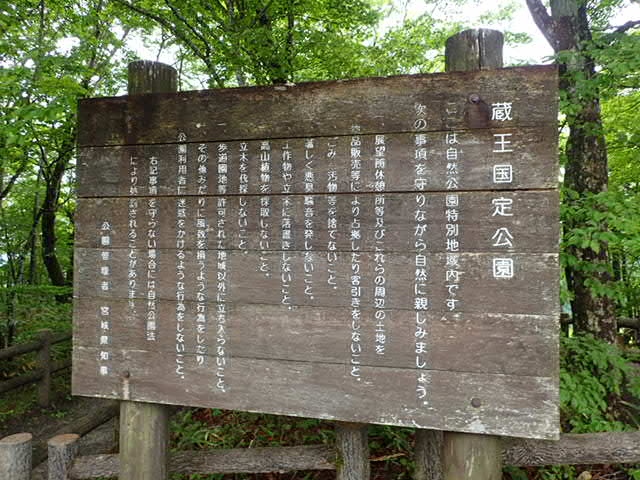 蔵王国定公園
ここは自然公園特別地域内です。
次の事項を守りながら自然に親しみましょう。
一、展望所休憩所等及びこれらの周辺の土地を
物品販売等により占拠したり客引きをしないこと。
一、ごみ、汚物等を捨てないこと。
一、著しく悪臭騒音を発しないこと。
一、工作物や立木に落書きしないこと。
一、高山植物を採取しないこと。
一、立木を伐採しないこと。
一、歩道園地等許可された地域以外に立ち入らないこと。
一、その他みだりに風致を損うような行為をしたり
公園利用者に迷惑をかけるような行為をしないこと。
右記事項を守らない場合には自然公園法
により処罰されることがあります。
公園管理者 宮城県知事